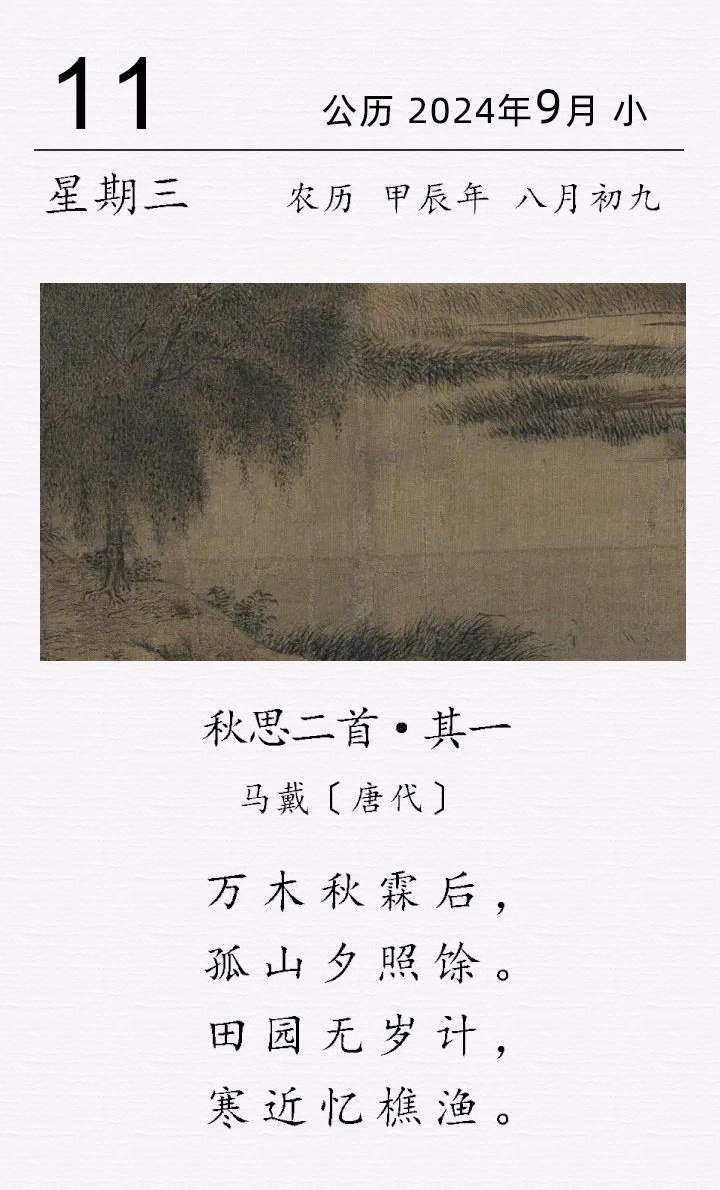 11
公历 2024年9月 小
星期三
农历 甲辰年 八月初九
秋思二首·其一
马戴〔唐代〕
万木秋霖后，
孤山夕照馀。
田园无岁计，
寒近忆樵渔。